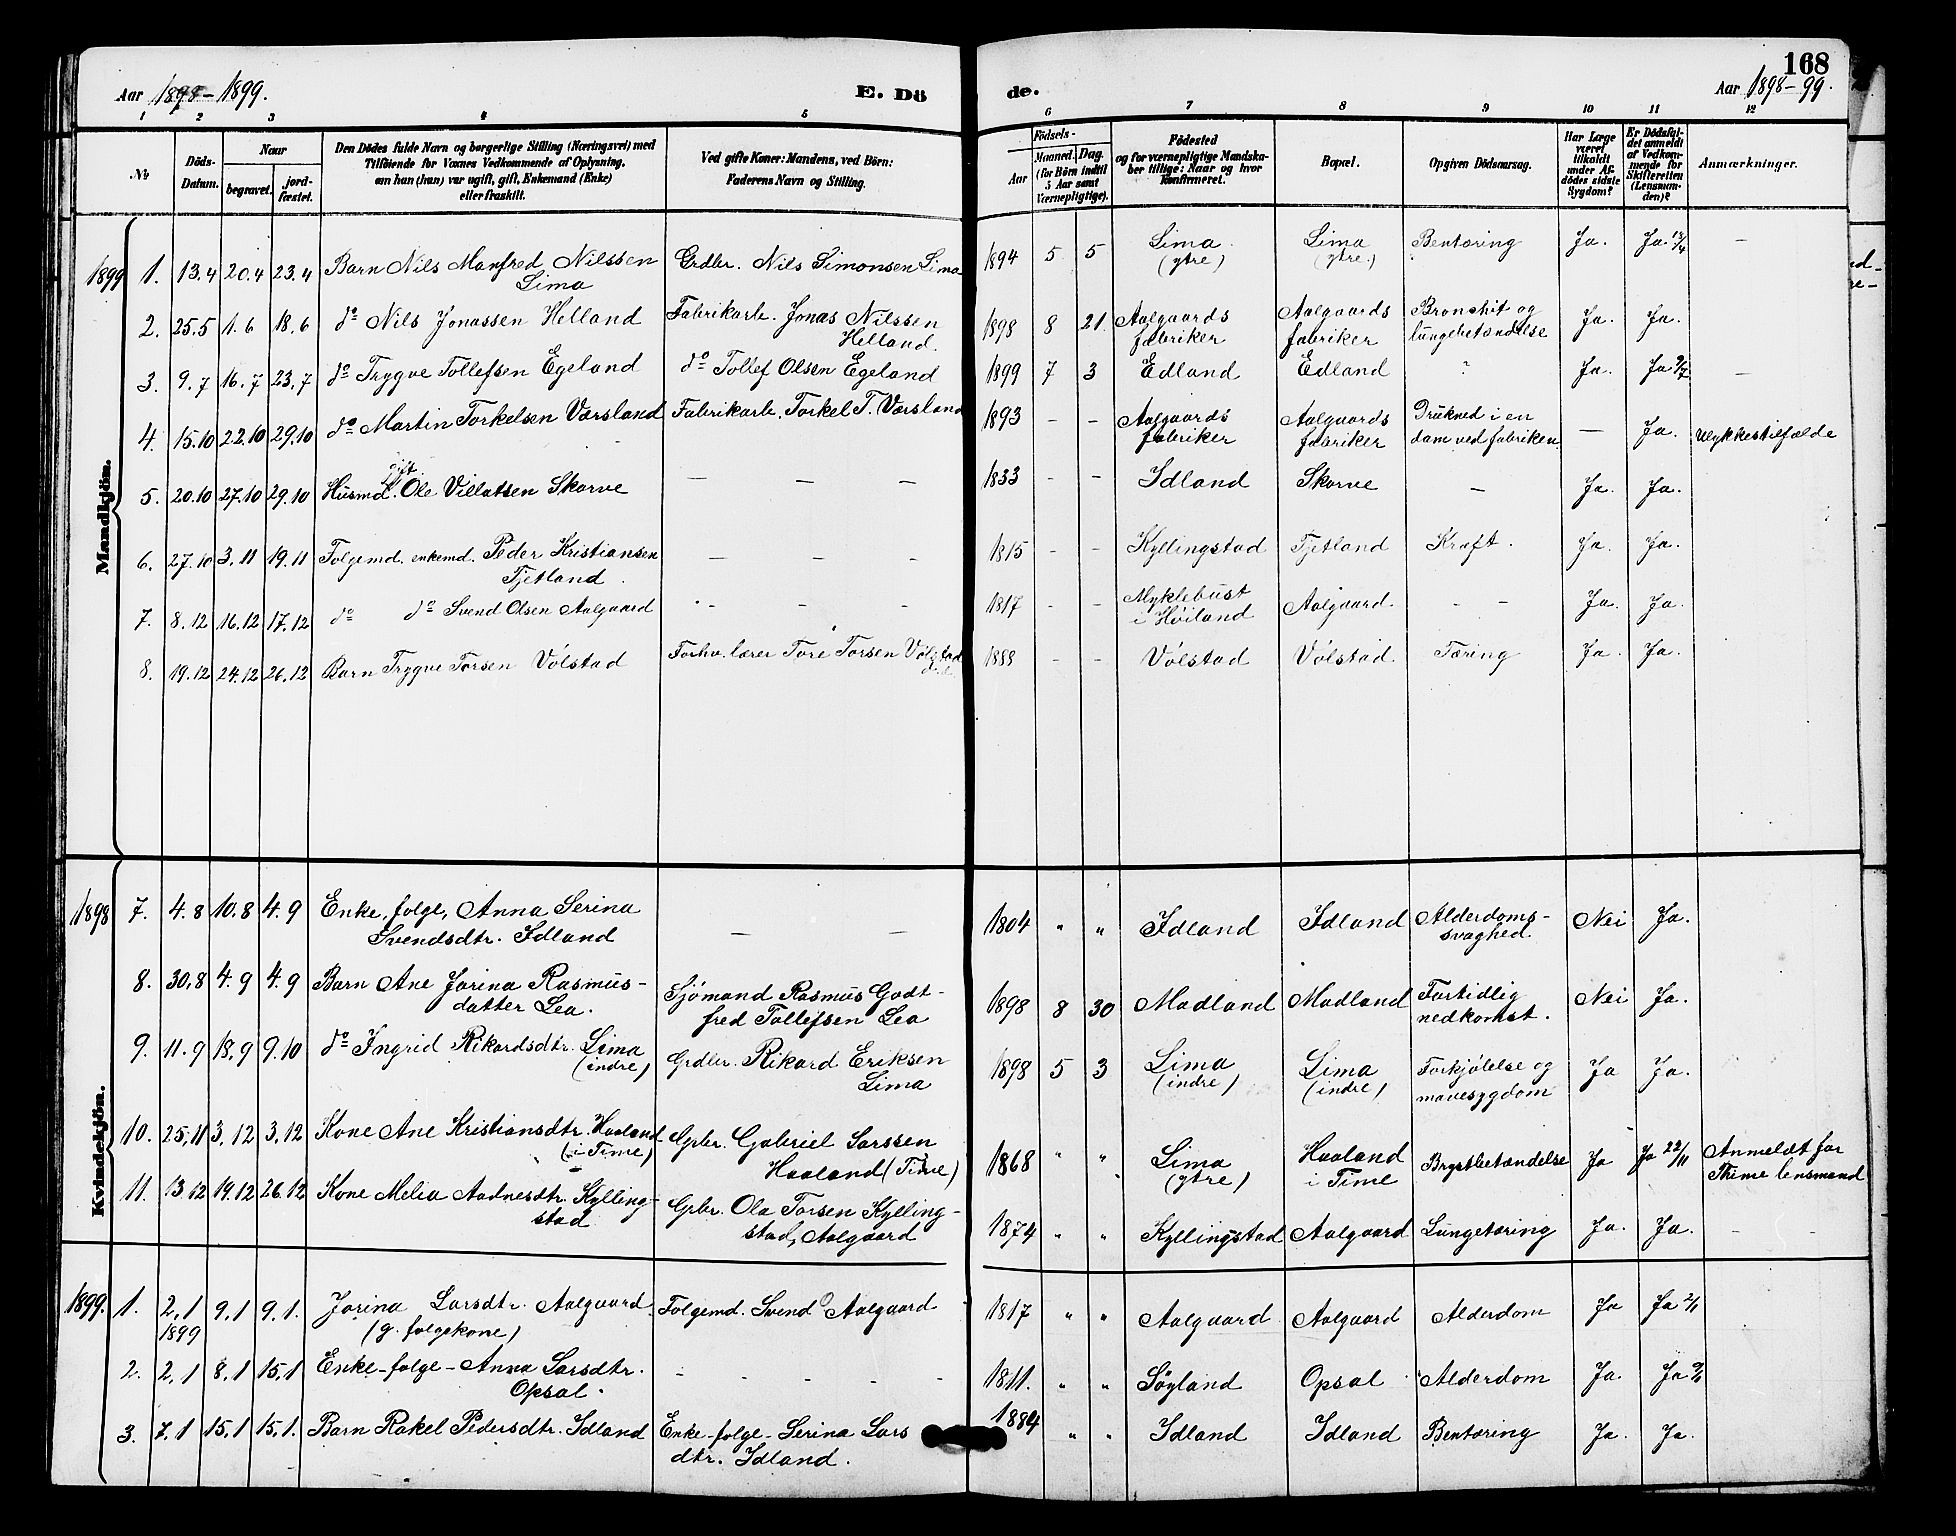 168
Aar 1898-1899. E. Dö de. Aar 1898-99.
1 2 3 4 5 6 7 8 9 10 11 12
№ Döds-Datum. Naar begravet. jord-fæstet. Den Dödes fulde Navn og borgerlige Stilling (Næringsvei) med Tilföiende for Voxnes Vedkommende af Oplysning, om han (hun) var ugift, gift, Enkemand (Enke) eller fraskilt. Ved gifte Koner: Mandens, ved Börn: Faderens Navn og Stilling. Födsels- Aar Maaned. Dag. (for Börn indtil 5 Aar samt Værnepligtige). Födested og for værnepligtige Mandskaber tillige: Naar og hvor konfirmeret. Bopæl. Opgiven Dödsaarsag. Har Læge været tilkaldt under Afdödes sidste Sygdom? Er Dödsfaldet anmeldt af Vedkommende for Skifteretten (Lensmanden)? Anmærkninger.
Mandkjön.
1899 1. 13.4 20.4 23.4 Barn Nils Manfred Nilssen Lima Grdbr. Nils Simonsen Lima 1894 5 5 Lima (ytre) Lima (ytre) Bentæring Ja. Ja. 13/4 –
2. 25.5 1.6 18.6 do Nils Jonassen Helland Fabrikarb. Jonas Nilssen Helland. 1898 8 21 Aalgaards fabriker Aalgaards fabriker Bronchit og lungebetændelse Ja. Ja.
3. 9.7 16.7 23.7 do Trygve Tollefsen Egeland do Tollef Olsen Egeland 1899 7 3 Edland Edland ? Ja. Ja 9/7 –
4. 15.10 22.10 29.10 do Martin TorkelsenVærsland Fabrikarb. Torkel T. Værsland 1893 – – Aalgaards fabriker Aalgaards fabriker Drukned i en dam ved fabriken – Ja. Ulykkestilfælde
5. 20.10 27.10 29.10 Husmd. gift Ole Villatsen Skorve – – – 1833 – – Idland Skorve – Ja. Ja.
6. 27.10 3.11 19.11 Folgemd. enkemd. Peder Kristiansen Tjetland – – – 1815 – – Kyllingstad Tjetland Kræft. Ja. Ja.
7. 8.12 16.12 17.12 do do Svend Olsen Aalgaard – – – 1817 – – Myklebust i Høiland Aalgaard. – – Ja. Ja.
8. 19.12 24.12 26.12 Barn Trygve Torsen Vølstad Forhv. lærer Tore Torsen Vølstad 1888 – – Vølstad Vølstad. Tæring Ja. Ja.
Kvindekjön.
1898 7. 4.8 10.8 4.9 Enke, folge, Anna Serina Svendsdtr. Idland – – 1804 " " Idland Idland Alderdomssvaghed. Nei Ja.
8. 30.8 4.9 4.9 Barn Ane Jorina Rasmusdatter Lea. Sjømand Rasmus Godtfred Tollefsen Lea 1898 8 30 Madland Madland Fortidlig nedkomst. Nei Ja.
9. 11.9 18.9 9.10 do Ingrid Rikardsdtr. Lima (indre) Grdbr. Rikard Eriksen Lima 1898 5 3 Lima (indre) Lima (indre) Forkjølelse og mavesygdom Ja Ja.
10. 25.11 3.12 3.12 Kone Ane Kristiansdtr. Haaland (i Time) Grbr. Gabriel Larssen Haaland (Time) 1868 " " Lima (ytre) Haaland i Time Brystbetændelse Ja Ja 22/11 Anmeldt for Thime lensmand
11. 13.12 19.12 26.12 Kone Melia Aadnesdtr. Kyllingstad Grbr. Ola Torsen Kyllingstad, Aalgaard 1874 " " Kyllingstad Aalgaard Lungetæring Ja. Ja. – –
1899. 1. 2.1 1899 9.1 9.1. Jorina Larsdtr. Aalgaard (g. folgekone) Folgemd. Svend O Aalgaard 1817 " " Aalgaard Aalgaard Alderdom Ja Ja 2/1
2. 2.1 8.1 15.1 Enke-folge- Anna Larsdtr. Opsal. – – – – 1811. " " Søyland Opsal Alderdom Ja. Ja
3. 7.1 15.1 15.1. Barn Rakel Pedersdtr. Idland Enke-folge- Serina Larsdtr. Idland. 1884 " " Idland Idland Bentæring Ja. Ja.